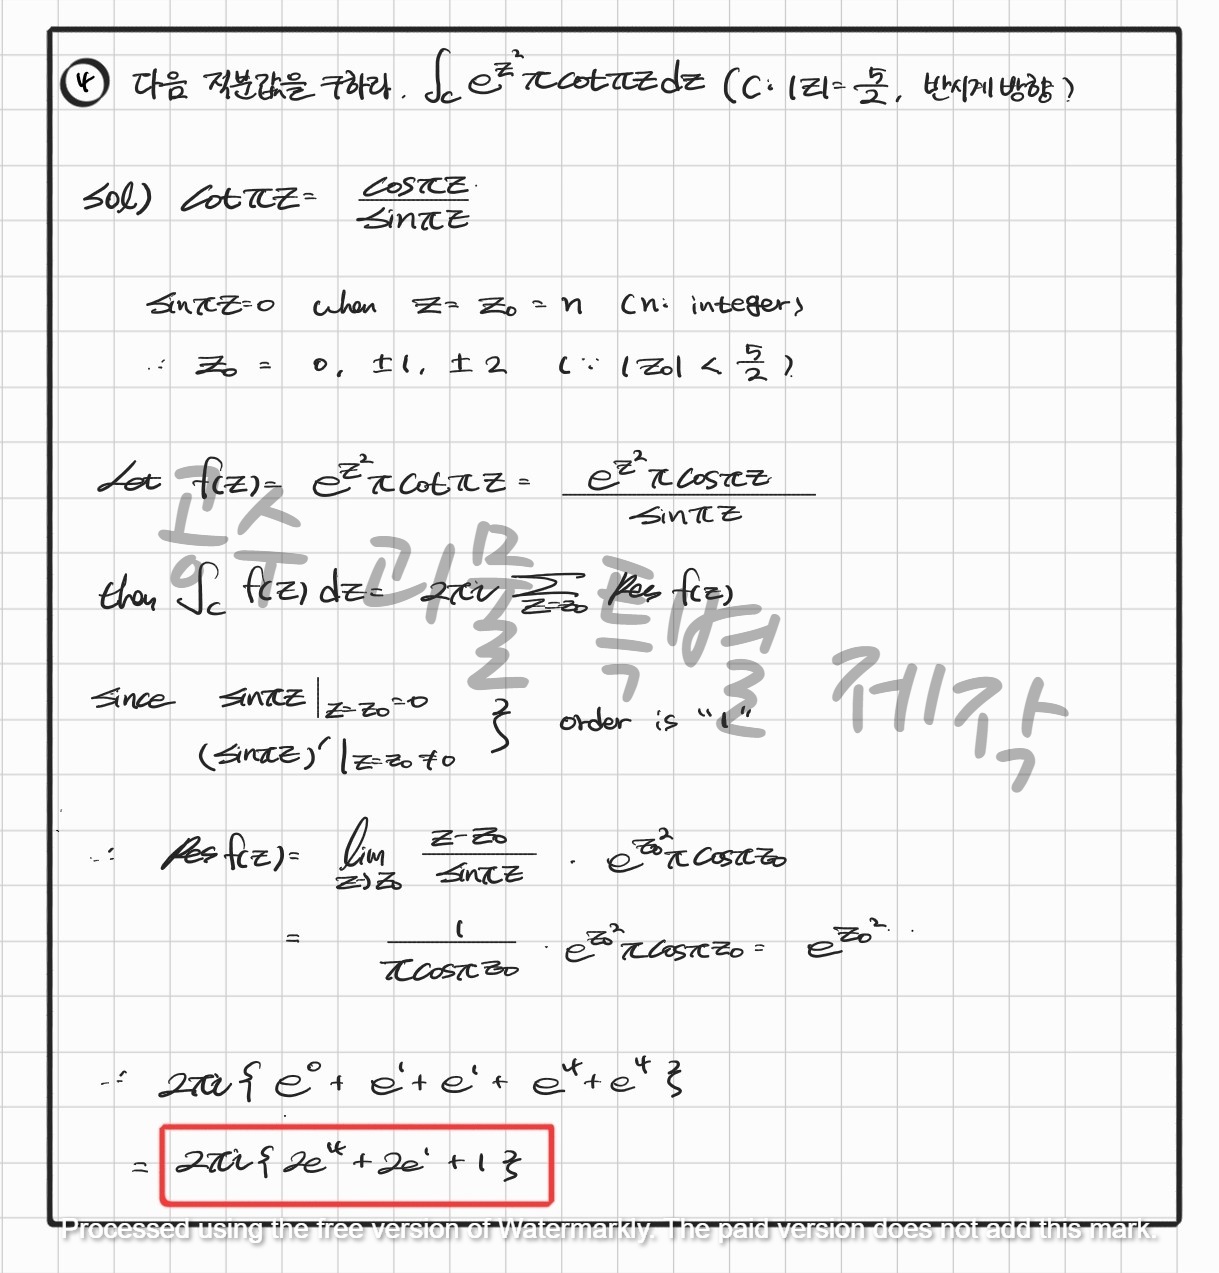 ④ 다음 적분값을 구하라. ∫_C e^{z²} π cot πz dz (C: |z|=5/2, 반시계 방향)
sol) cot πz = cos πz / sin πz
sin πz = 0 when z = z₀ = n (n: integer)
∴ z₀ = 0, ±1, ±2 (∵ |z₀| < 5/2)
Let f(z) = e^{z²} π cot πz = e^{z²} π cos πz / sin πz
공수 과물 특별 제작
then ∫_C f(z) dz = 2πi Σ_{z=z₀} Res f(z)
since sin πz |_{z=z₀} = 0
(sin πz)′ |_{z=z₀} ≠ 0 } order is "1"
∴ Res f(z) = lim_{z→z₀} (z−z₀)/(sin πz) · e^{z₀²} π cos πz₀
= 1/(π cos πz₀) · e^{z₀²} π cos πz₀ = e^{z₀²}
∴ 2πi { e⁰ + e¹ + e¹ + e⁴ + e⁴ }
= 2πi { 2e⁴ + 2e¹ + 1 }
Processed using the free version of Watermarkly. The paid version does not add this mark.